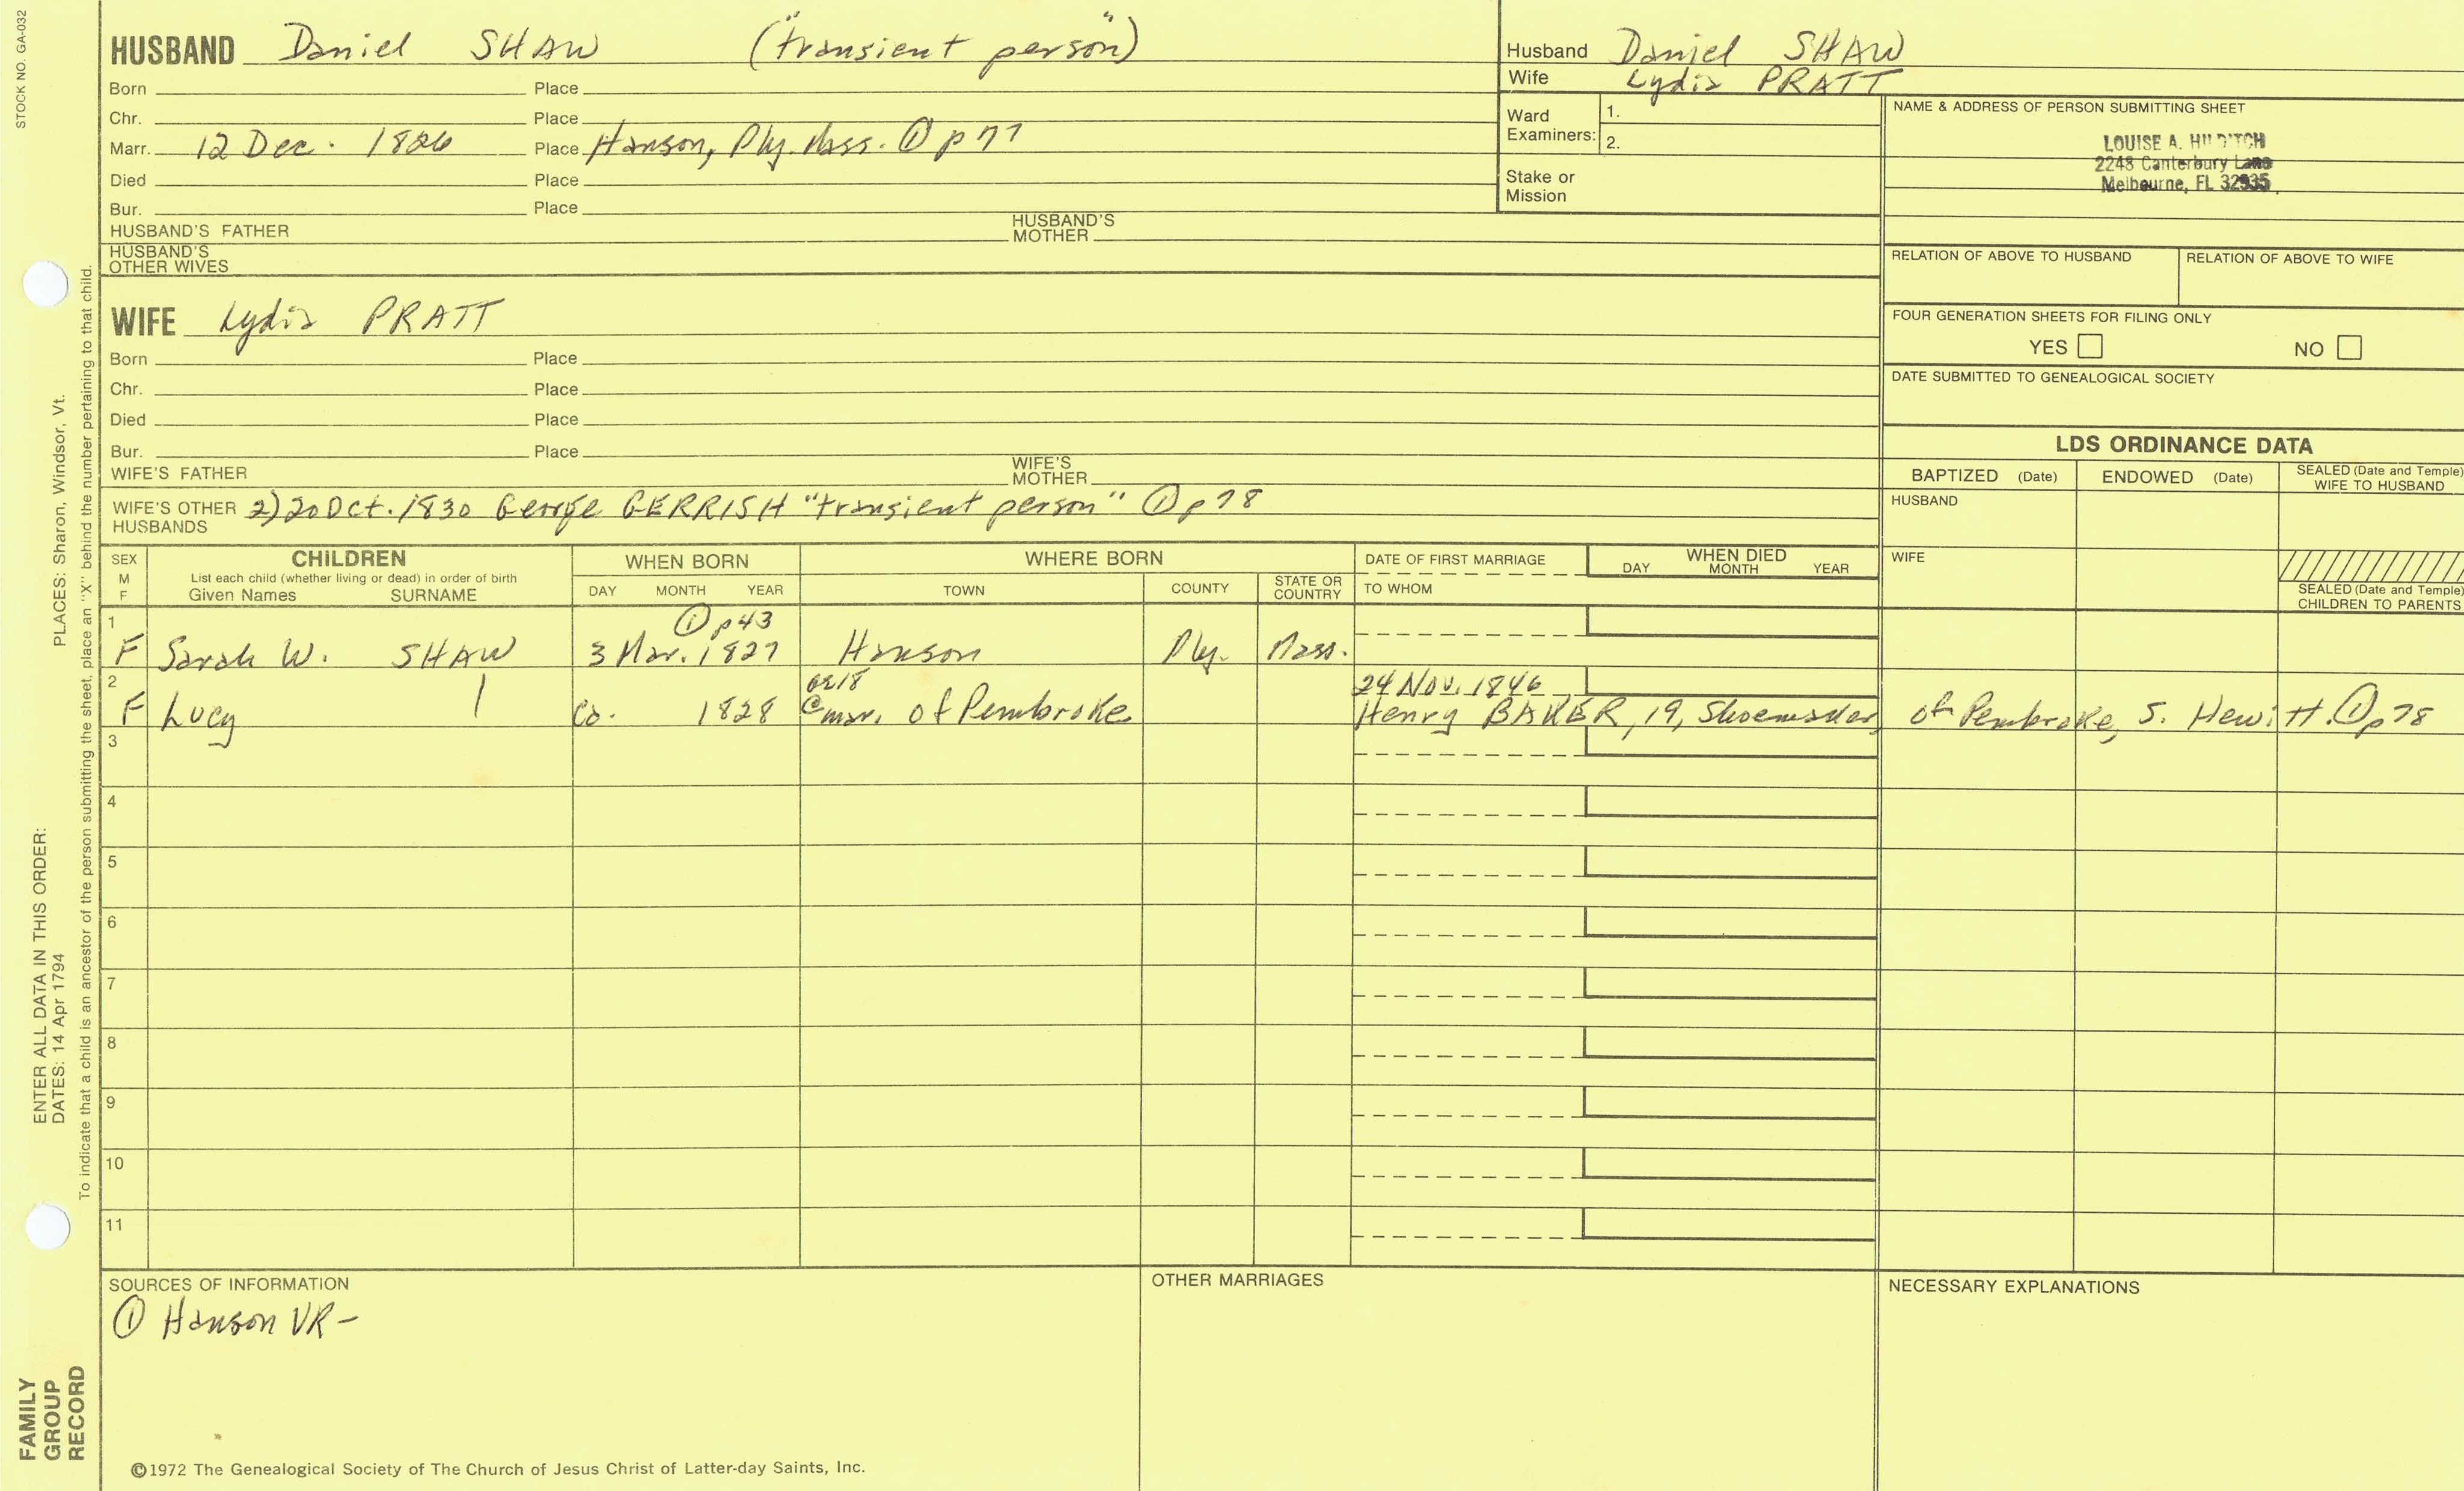 STOCK NO. GA-032
HUSBAND Daniel SHAW ("transient person")
Born Place
Chr. Place
Marr. 12 Dec. 1826 Place Hanson, Ply. Mass. ① p 77
Died Place
Bur. Place
HUSBAND'S FATHER HUSBAND'S MOTHER
HUSBAND'S OTHER WIVES
Husband Daniel SHAW
Wife Lydia PRATT
Ward Examiners: 1.
2.
Stake or Mission
NAME & ADDRESS OF PERSON SUBMITTING SHEET
LOUISE A. HILDITCH
2248 Canterbury Lane
Melbourne, FL 32935
RELATION OF ABOVE TO HUSBAND RELATION OF ABOVE TO WIFE
FOUR GENERATION SHEETS FOR FILING ONLY
YES NO
DATE SUBMITTED TO GENEALOGICAL SOCIETY
WIFE Lydia PRATT
Born Place
Chr. Place
Died Place
Bur. Place
WIFE'S FATHER WIFE'S MOTHER
WIFE'S OTHER HUSBANDS 2) 20 Oct. 1830 George GERRISH "transient person" ① p 78
LDS ORDINANCE DATA
BAPTIZED (Date) ENDOWED (Date) SEALED (Date and Temple) WIFE TO HUSBAND
HUSBAND
WIFE
SEALED (Date and Temple) CHILDREN TO PARENTS
SEX M F
CHILDREN
List each child (whether living or dead) in order of birth
Given Names SURNAME
WHEN BORN
DAY MONTH YEAR
WHERE BORN
TOWN COUNTY STATE OR COUNTRY
DATE OF FIRST MARRIAGE
TO WHOM
WHEN DIED
DAY MONTH YEAR
1 ① p 43
F Sarah W. SHAW 3 Mar. 1827 Hanson Ply. Mass.
2 ae 18 24 Nov. 1846
F Lucy | Ca. 1828 @ mar. of Pembroke Henry BAKER, 19, Shoemaker, of Pembroke, S. Hewitt. ① p 78
3
4
5
6
7
8
9
10
11
SOURCES OF INFORMATION
① Hanson VR -
OTHER MARRIAGES
NECESSARY EXPLANATIONS
©1972 The Genealogical Society of The Church of Jesus Christ of Latter-day Saints, Inc.
FAMILY
GROUP
RECORD
ENTER ALL DATA IN THIS ORDER:
DATES: 14 Apr 1794 PLACES: Sharon, Windsor, Vt.
To indicate that a child is an ancestor of the person submitting the sheet, place an "X" behind the number pertaining to that child.